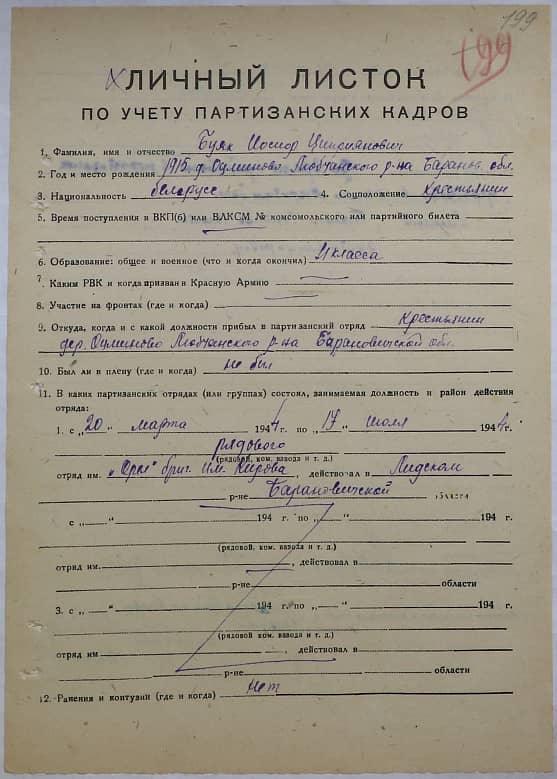 199
199
ЛИЧНЫЙ ЛИСТОК
ПО УЧЕТУ ПАРТИЗАНСКИХ КАДРОВ
1. Фамилия, имя и отчество Буяк Иосиф
2. Год и место рождения 1915 д. Любчанского р-на Баранов. обл.
3. Национальность белорусс 4. Соцположение Крестьянин
5. Время поступления в ВКП(б) или ВЛКСМ № комсомольского или партийного билета
6. Образование: общее и военное (что и когда окончил) 4 класса
7. Каким РВК и когда призван в Красную Армию
8. Участие на фронтах (где и когда)
9. Откуда, когда и с какой должности прибыл в партизанский отряд Крестьянин
дер. Любчанского р-на Барановичской обл.
10. Был ли в плену (где и когда) не был
11. В каких партизанских отрядах (или группах) состоял, занимаемая должность и район действия
отряда:
1. с „20" марта 1944 г. по „17" июля 1944 г.
рядового
(рядовой, ком. взвода и т. д.)
отряд им. бриг. им. Кирова, действовал в Лидском
р-не Барановичской области
с „ " 194 г. по „ " 194 г.
(рядовой, ком. взвода и т. д.)
отряд им. , действовал в
р-не области
3. с „ " 194 г. по „ " 194 г.
(рядовой, ком. взвода и т. д.)
отряд им , действовал в
р-не области
12. Ранения и контузии (где и когда) нет